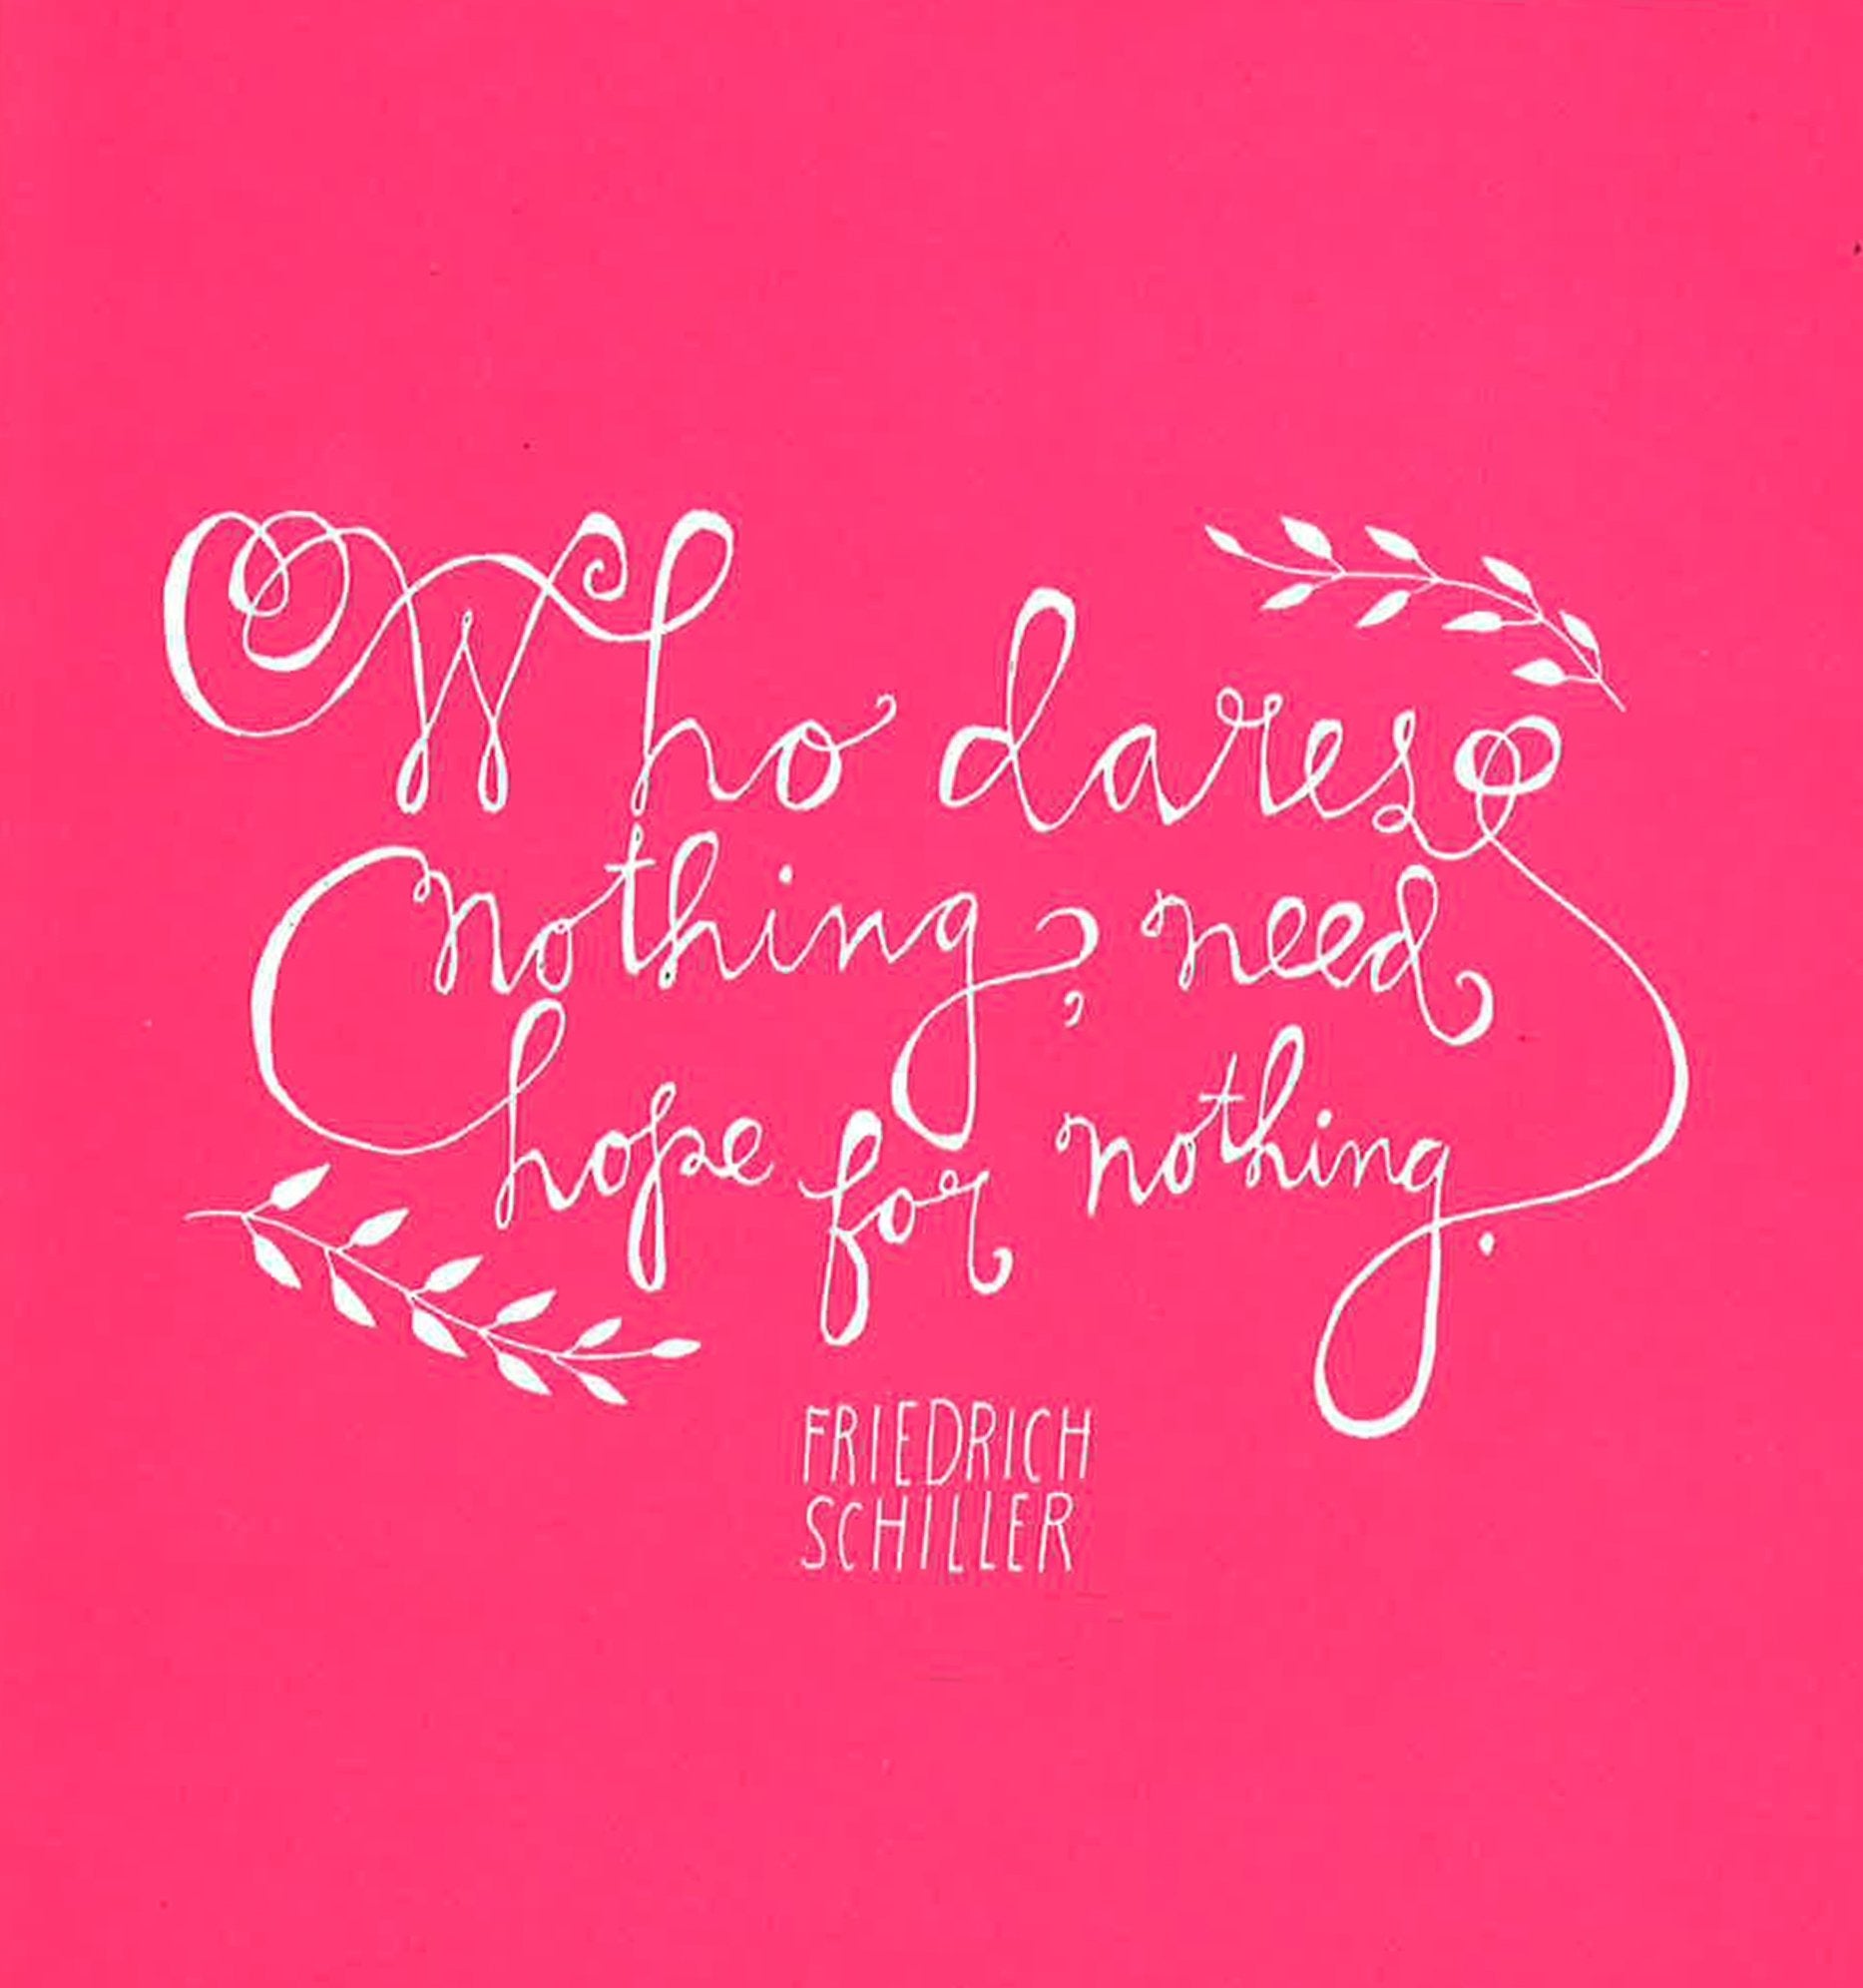 Who dares
nothing, need
hope for nothing.
FRIEDRICH
SCHILLER